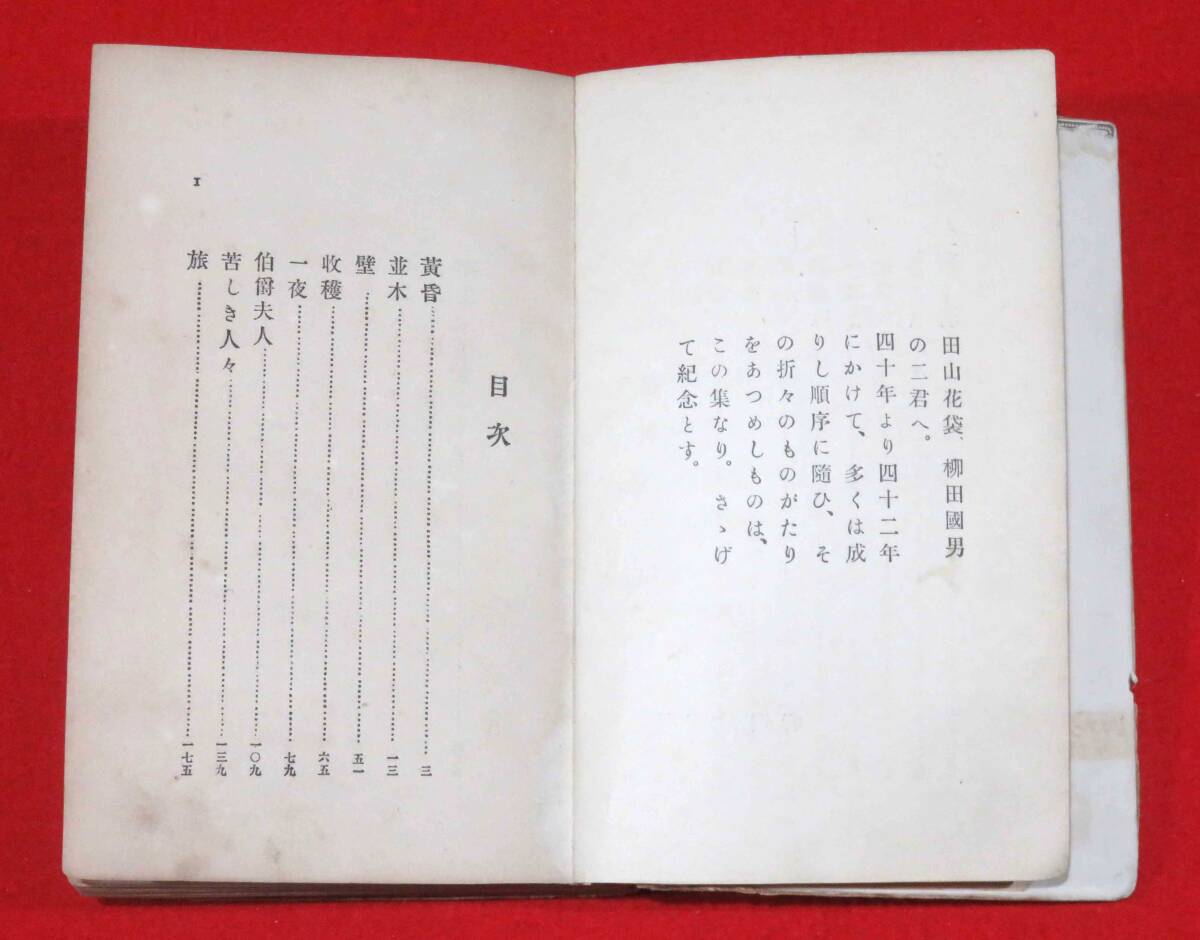 田山花袋、柳田國男
の二君へ。
四十年より四十二年
にかけて、多くは成
りし順序に隨ひ、そ
の折々のものがたり
をあつめしものは、
この集なり。さゝげ
て紀念とす。
目次
黃昏……三
並木……一三
壁……五一
收穫……六五
一夜……七九
伯爵夫人……一〇九
苦しき人々……一三九
旅……一七五
I